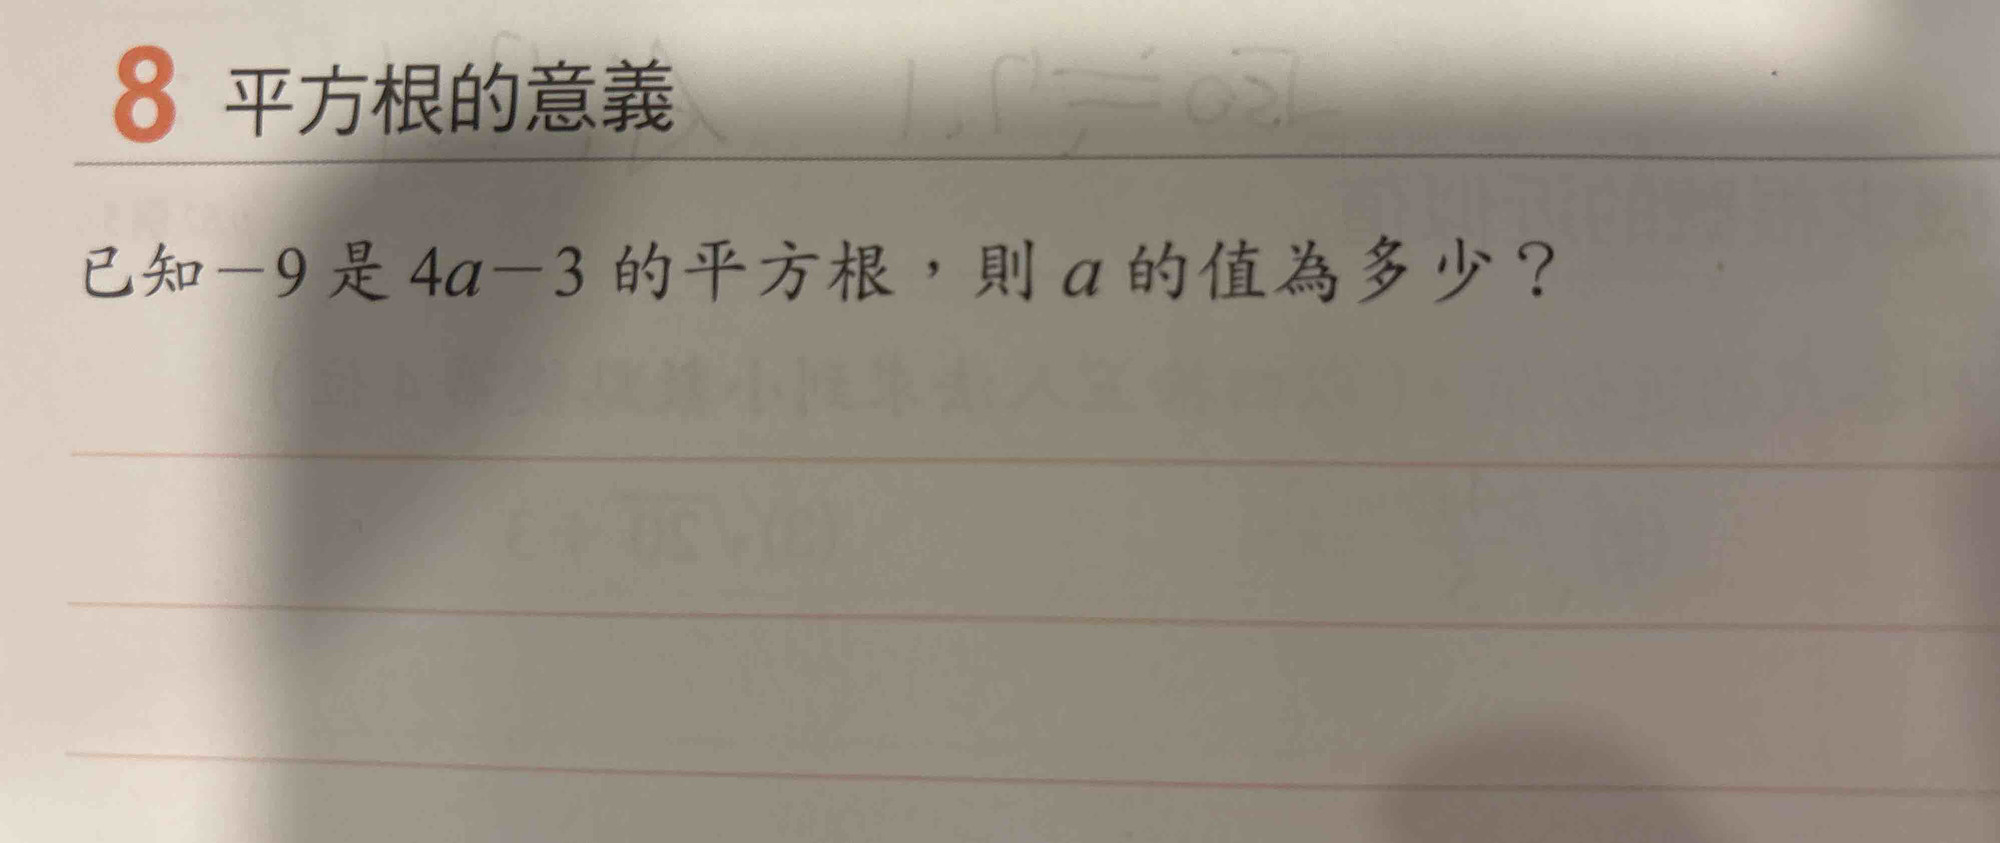 8 平方根的意義
已知-9是4a-3的平方根,則a的值為多少?